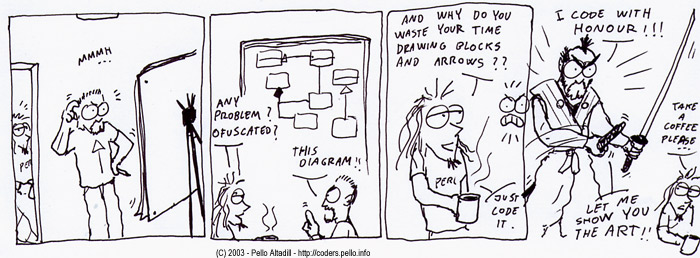 MMMH
...
PE
ANY
PROBLEM?
OFUSCATED?
THIS
DIAGRAM!!
AND WHY DO YOU
WASTE YOUR TIME
DRAWING BLOCKS
AND ARROWS??
PERL
JUST
CODE
IT.
I CODE WITH
HONOUR!!!
TAKE
A
COFFEE
PLEASE...
LET ME
SHOW YOU
THE ART!!
(C) 2003 - Pello Altadill - http://coders.pello.info